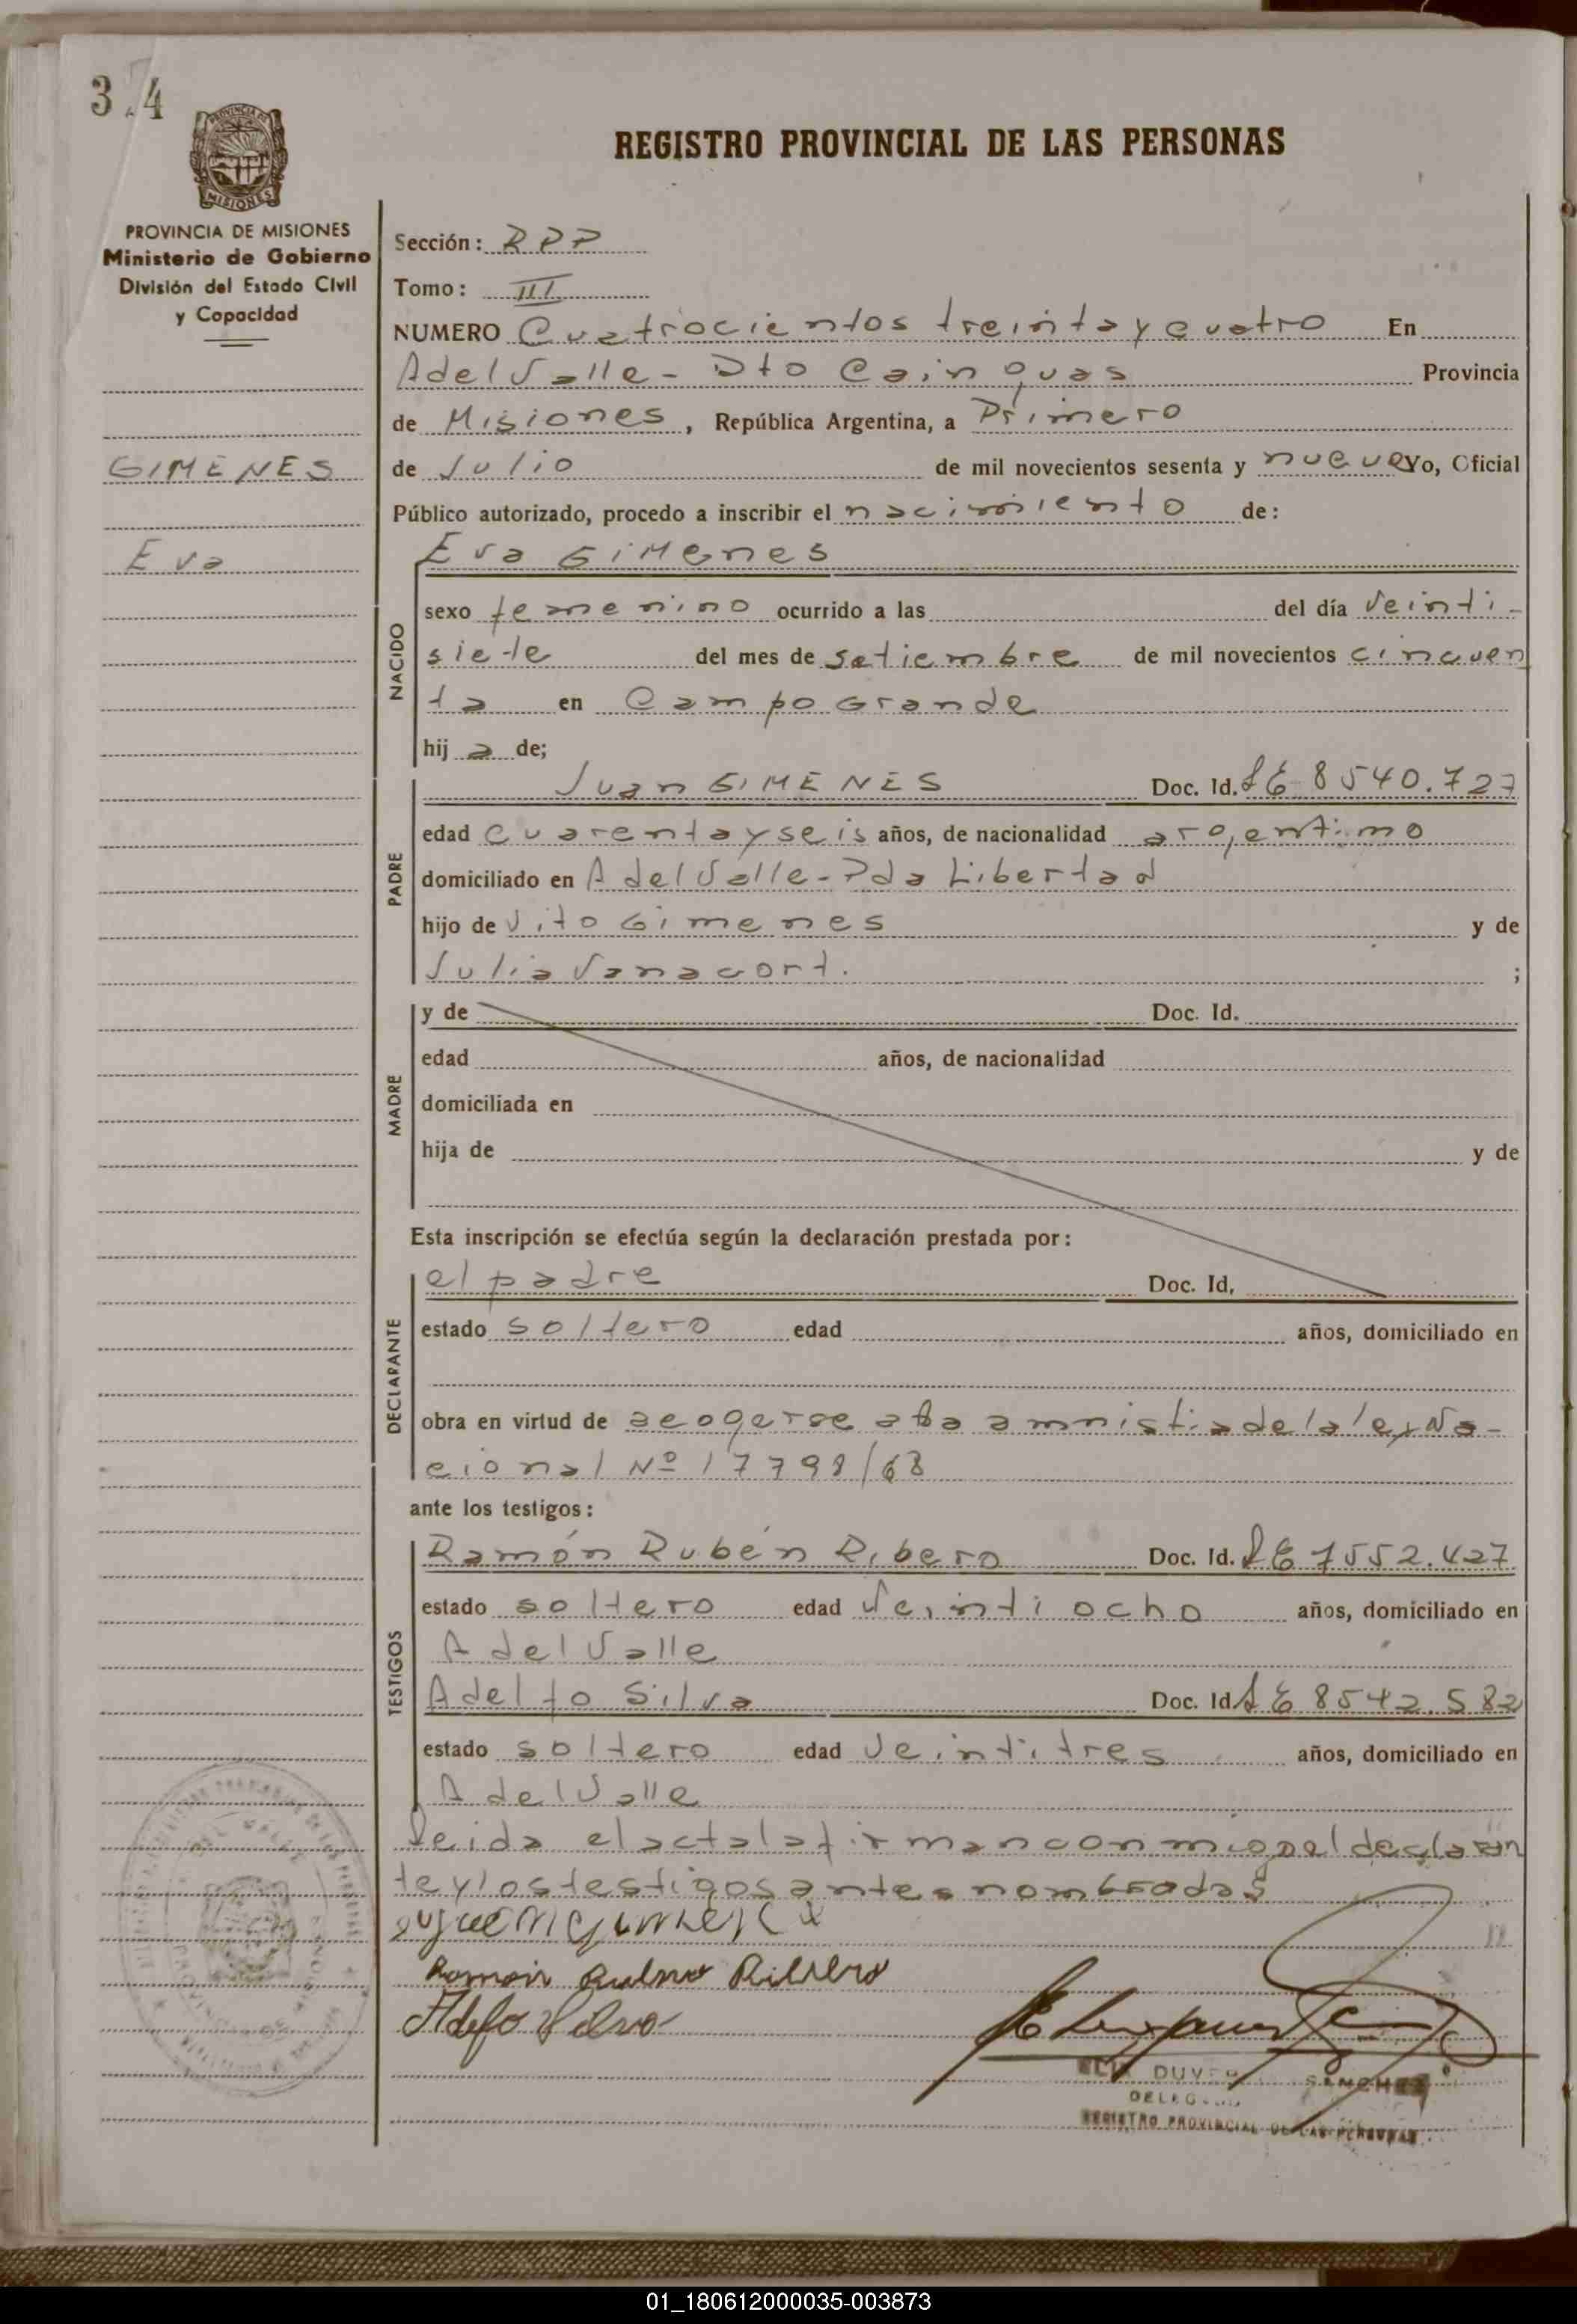 3 4
REGISTRO PROVINCIAL DE LAS PERSONAS
PROVINCIA DE MISIONES
Ministerio de Gobierno
División del Estado Civil
y Capacidad
GIMENES
Eva
Sección: RPP
Tomo: III
NUMERO Cuatrocientos treinta y cuatro En
A del Valle - Dto Cainguas Provincia
de Misiones, República Argentina, a Primero
de Julio de mil novecientos sesenta y nueve Yo, Oficial
Público autorizado, procedo a inscribir el nacimiento de:
NACIDO
Eva GiMenes
sexo femenino ocurrido a las del día veinti-
siete del mes de setiembre de mil novecientos cincuen
ta en Campo Grande
hij a de;
PADRE
Juan GIMENES Doc. Id. LE 8540.727
edad cuarenta y seis años, de nacionalidad argentino
domiciliado en A del Valle - Pda Libertad
hijo de Vito Gimenes y de
Julia ;
MADRE
y de Doc. Id.
edad años, de nacionalidad
domiciliada en
hija de y de
Esta inscripción se efectúa según la declaración prestada por:
DECLARANTE
el padre Doc. Id,
estado soltero edad años, domiciliado en
obra en virtud de acogerse a la amnistia de la ley Na-
cional Nº 17798/68
ante los testigos:
TESTIGOS
Ramón Rubén Ribero Doc. Id. LE 7552.427
estado soltero edad veintiocho años, domiciliado en
A del Valle
Adelfo Silva Doc. Id LE 8542.582
estado soltero edad veintitres años, domiciliado en
A del Valle
Leida el acta la firman conmigo el declaran
te y los testigos antes nombrados
Adelfo Silva
SANCHEZ
REGISTRO PROVINCIAL DE LAS PERSONAS
01_180612000035-003873